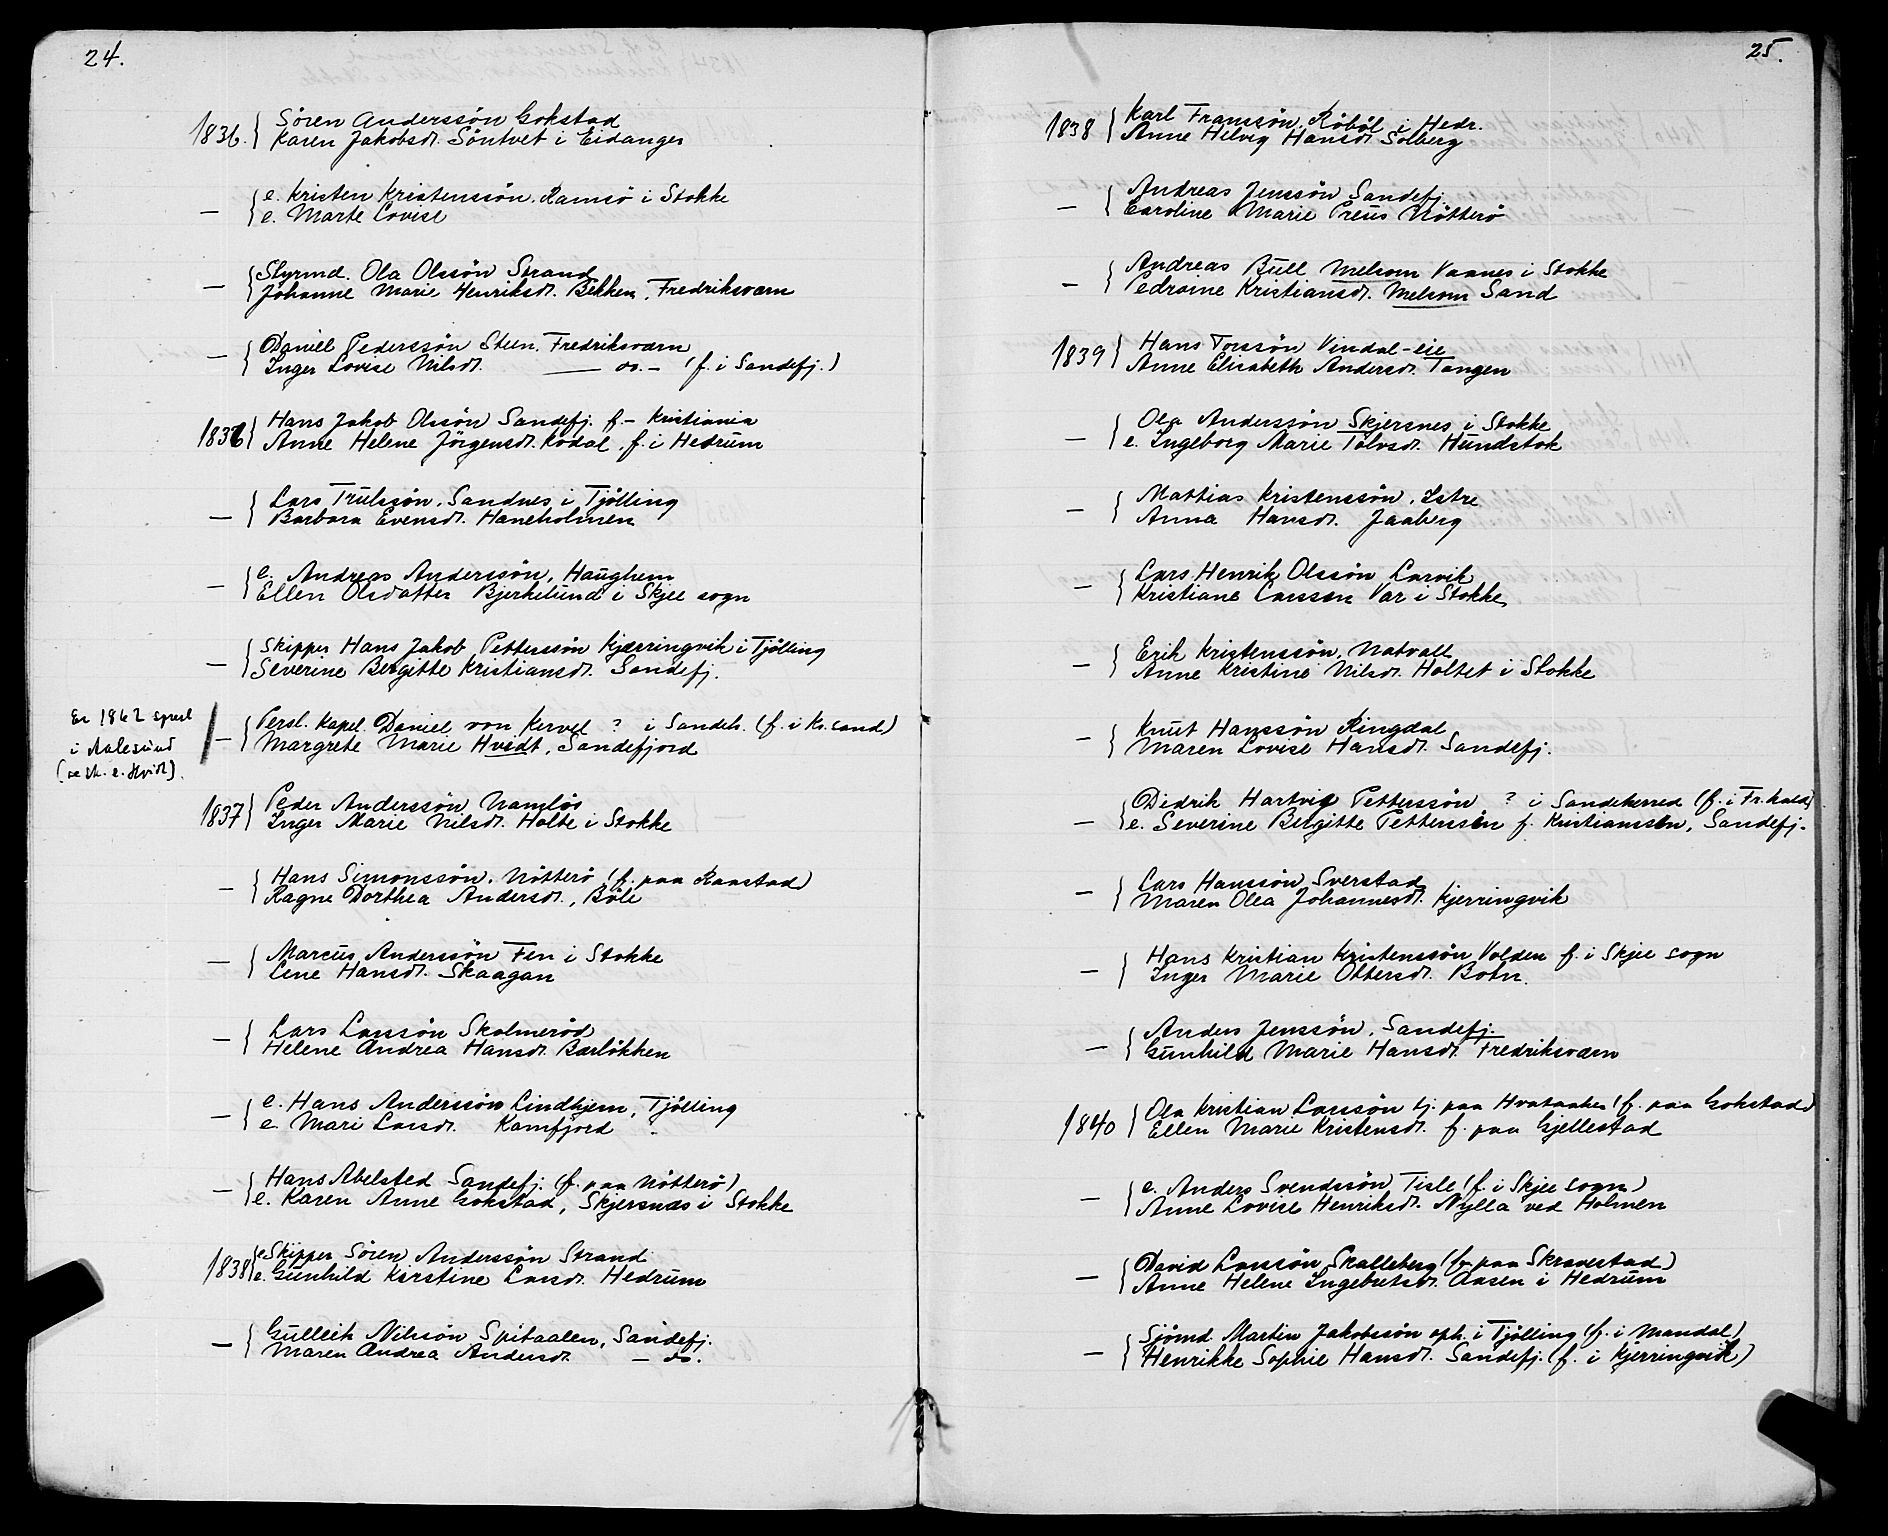 24.
1836. { Sören Anderssön Gokstad
Karen Jakobsd. Söntvet i Eidanger
— { e. Kristen Kristenssön, Ramsö i Stokke
e. Marte Lovise
— { Styrmd. Ola Olssön Strand
Johanne Marie Henriksd. Bekken, Fredriksværn
— { Daniel Pederssön Steen, Fredriksværn
Inger Lovise Nilsd. — do. — (f. i Sandefj.)
1836 { Hans Jakob Olssön Sandefj. f. - Kristiania
Anne Helene Jörgensd. Kodal f. i Hedrum
— { Lars Trulssön, Sandnes i Tjölling
Barbara Evensd. Haneholmen
— { e. Andreas Anderssön, Haughem
Ellen Olsdatter Bjerkelund i Skjee sogn
— { Skipper Hans Jakob Petterssön Kjærringvik i Tjölling
Severine Bergitte Kristiansd. Sandefj.
Er 1862 sprest
i Aalesund
— { Persl. Kapel. Daniel von Kervel ? i Sandeh. (f. i Kr.sand)
Margrete Marie Hvidt, Sandefjord
1837 { Peder Anderssön Namlös
Inger Marie Nilsd. Holte i Stokke
— { Hans Simonssön, Nötterö (f. paa Raastad)
Ragne Dorthea Andersd., Böle
— { Marcus Anderssön Fen i Stokke
Lene Hansd. Skaagan
— { Lars Larssön Skolmeröd
Helene Andrea Hansd. Bærlökken
— { e. Hans Anderssön Lindhjem, Tjölling
e. Mari Larsd. Kamfjord
— { Hans Abelsted Sandefj. (f. paa Nötterö)
e. Karen Anne Gokstad, Skjersnæs i Stokke
1838 { e. Skipper Sören Anderssön Strand
e. Gunhild Kirstine Larsd. Hedrum
— { Gulleik Nilssön Spitaalen, Sandefj.
Maren Andrea Andersd. — do.
25.
1838 { Karl Franssön, Röböl i Hedr.
Anne Helvig Hansd. Solberg
— { Andreas Jenssön Sandefj.
Caroline Marie Preus Nötterö
— { Andreas Bull Melsom Vaanes i Stokke
Pedroine Kristiansd. Melsom Sand
1839 { Hans Torssön Vindal-eie
Anne Elisabeth Andersd. Tangen
— { Ola Anderssön Skjersnes i Stokke
e. Ingeborg Marie Tolvsd. Hundstok
— { Mattias Kristenssön, Istre
Anna Hansd. Jaaberg
— { Lars Henrik Olssön Larvik
Kristiane Larssen Var i Stokke
— { Erik Kristenssön, Natvall
Anne Kristine Nilsd. Holtet i Stokke
— { Knut Hanssön Ringdal
Maren Lovise Hansd. Sandefj.
— { Didrik Hartvig Petterssön ? i Sandeherred (f. i Fr.hald)
e. Severine Bergitte Petterssen f. Kristianssen, Sandefj.
— { Lars Hanssön Sverstad
Maren Olea Johannesd. Kjerringvik
— { Hans Kristian Kristenssön Volden f. i Skjee sogn
Inger Marie Ottersd. Botn.
— { Anders Jenssön, Sandefj.
Gunhild Marie Hansd. Fredriksværn
1840 { Ola Kristian Larssön tj. paa Hvataaker (f. paa Gokstad)
Ellen Marie Kristensd. f. paa Gjellestad
— { e. Anders Svendssön Tisle (f. i Skjee sogn)
Anne Lovise Henriksd. Nylla ved Holmen
— { David Larssön Skalleberg (f. paa Skravestad)
Anne Helene Ingebretsd. Aasen i Hedrum
— { Sjömd. Martin Jakobssön oph. i Tjölling (f. i Mandal)
Henrikke Sophie Hansd. Sandefj. (f. i Kjerringvik)